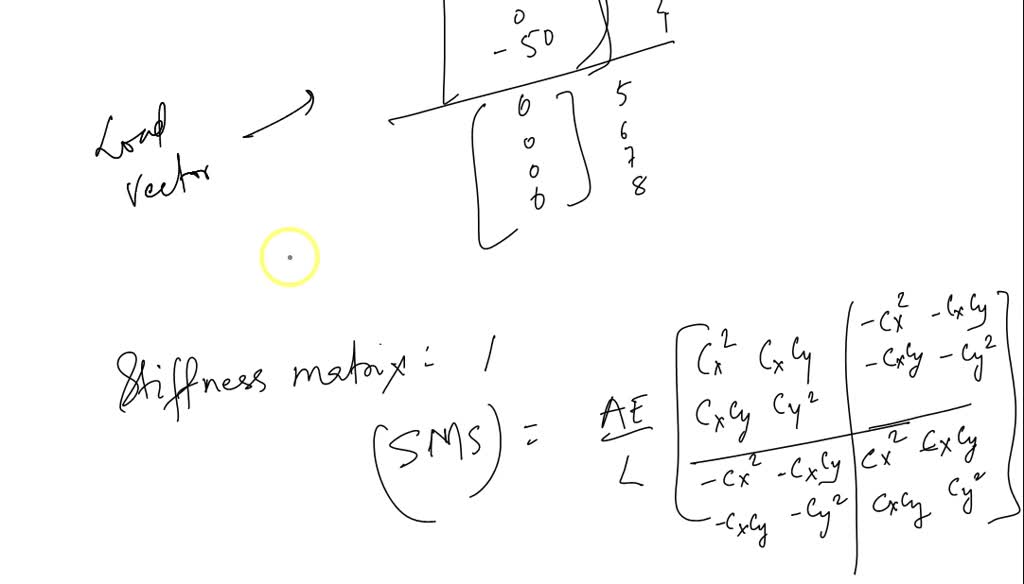 0
-50 4
0 5
0 6
0 7
0 8
Load
vector
Stiffness matrix :
(SMS) = AE/L
Cx² CxCy -Cx² -CxCy
CxCy Cy² -CxCy -Cy²
-Cx² -CxCy Cx² CxCy
-CxCy -Cy² CxCy Cy²